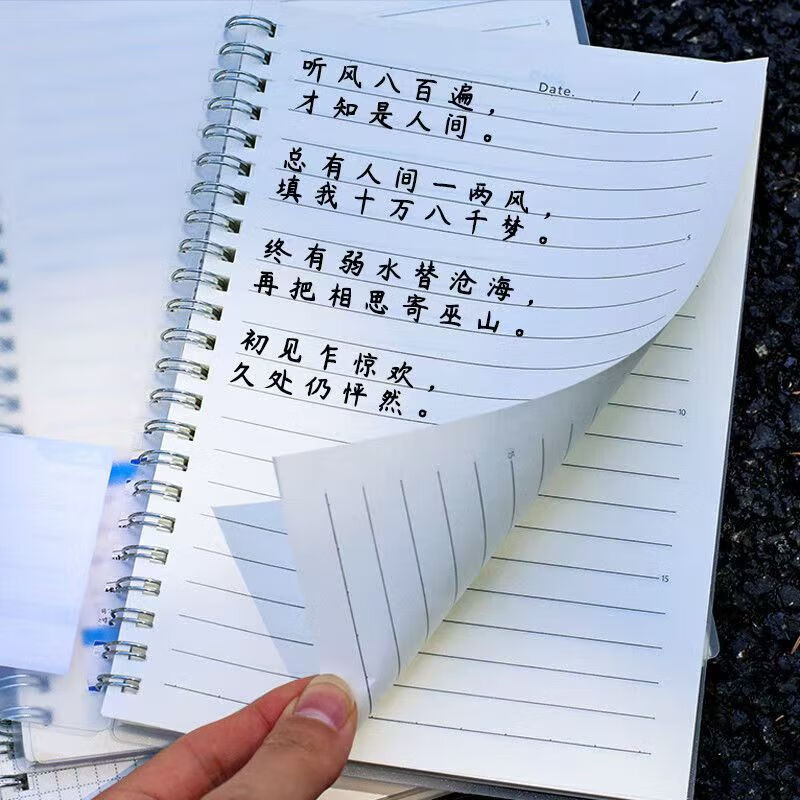 Date. / /
听风八百遍，
才知是人间。
总有人间一两风，
填我十万八千梦。
终有弱水替沧海，
再把相思寄巫山。
初见乍惊欢，
久处仍怦然。
5
5
10
15